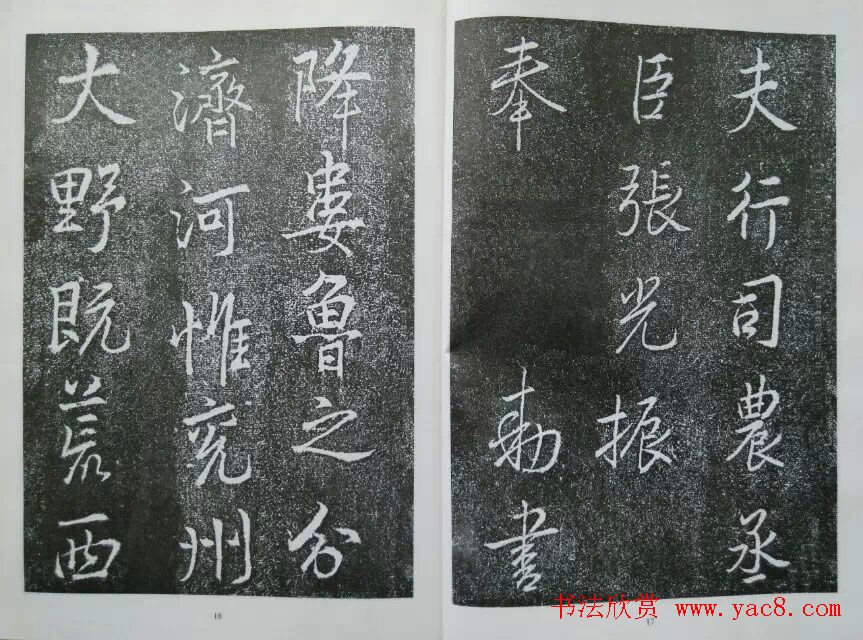 夫行司農丞
臣張光振
奉 勅書
降婁魯之分
濟河惟兖州
大野既荒西
17
18
书法欣赏 www.yac8.com